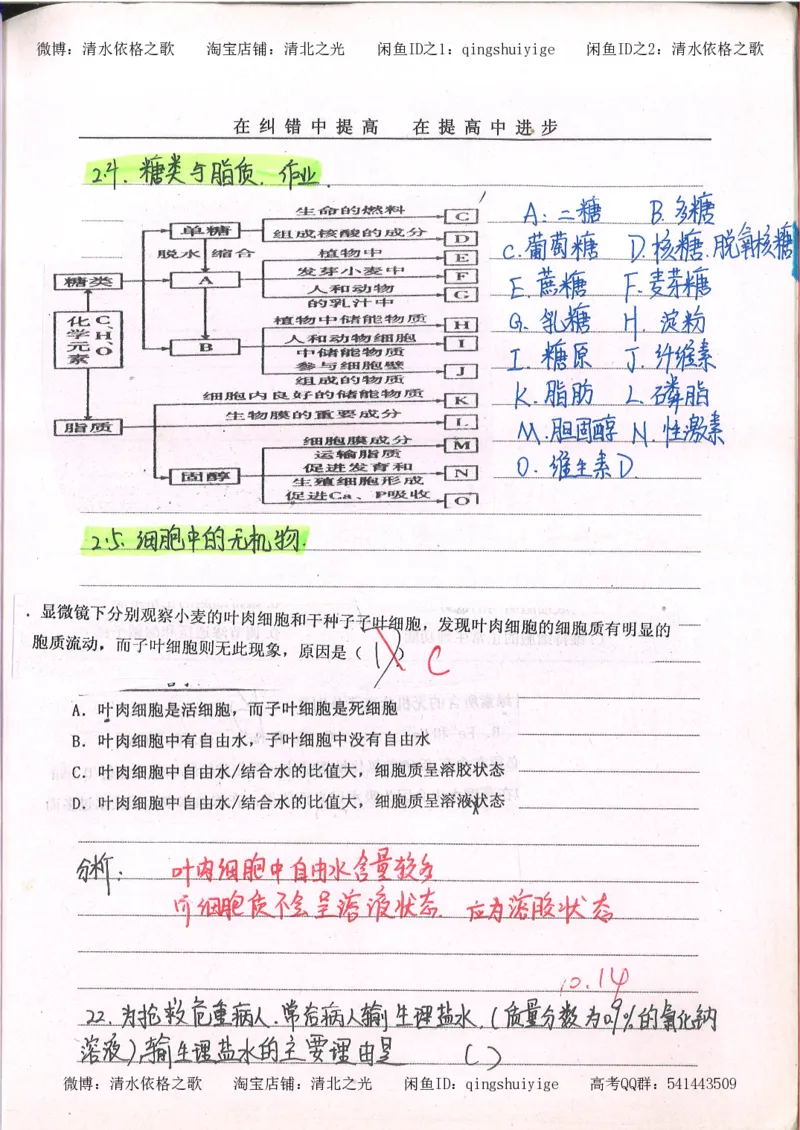 微博：清水依格之歌 淘宝店铺：清北之光 闲鱼ID之1：qingshuiyige 闲鱼ID之2：清水依格之歌
在纠错中提高 在提高中进步
2.4. 糖类与脂质. 作业
糖类
化学元素
C、H、O
脂质
单糖
脱水 缩合
A
B
固醇
生命的燃料 C
组成核酸的成分 D
植物中 E
发芽小麦中 F
人和动物的乳汁中 G
植物中储能物质 H
人和动物细胞中储能物质 I
参与细胞壁组成的物质 J
细胞内良好的储能物质 K
生物膜的重要成分 L
细胞膜成分
运输脂质 M
促进发育和生殖细胞形成 N
促进Ca、P吸收 O
A：二糖 B.多糖
C.葡萄糖 D.核糖.脱氧核糖
E.蔗糖 F.麦芽糖
G.乳糖 H.淀粉
I.糖原 J.纤维素
K.脂肪 L.磷脂
M.胆固醇 N.性激素
O.维生素D.
2.5. 细胞中的无机物.
. 显微镜下分别观察小麦的叶肉细胞和干种子子叶细胞，发现叶肉细胞的细胞质有明显的
胞质流动，而子叶细胞则无此现象，原因是（ ） C
A．叶肉细胞是活细胞，而子叶细胞是死细胞
B．叶肉细胞中有自由水，子叶细胞中没有自由水
C．叶肉细胞中自由水/结合水的比值大，细胞质呈溶胶状态
D．叶肉细胞中自由水/结合水的比值大，细胞质呈溶液状态
分析： 叶肉细胞中自由水含量较多
细胞质不会呈溶液状态. 应为溶胶状态
10.14
22.为抢救危重病人.常给病人输生理盐水.(质量分数为0.9%的氯化钠
溶液),输生理盐水的主要理由是 ( )
微博：清水依格之歌 淘宝店铺：清北之光 闲鱼ID：qingshuiyige 高考QQ群：541443509